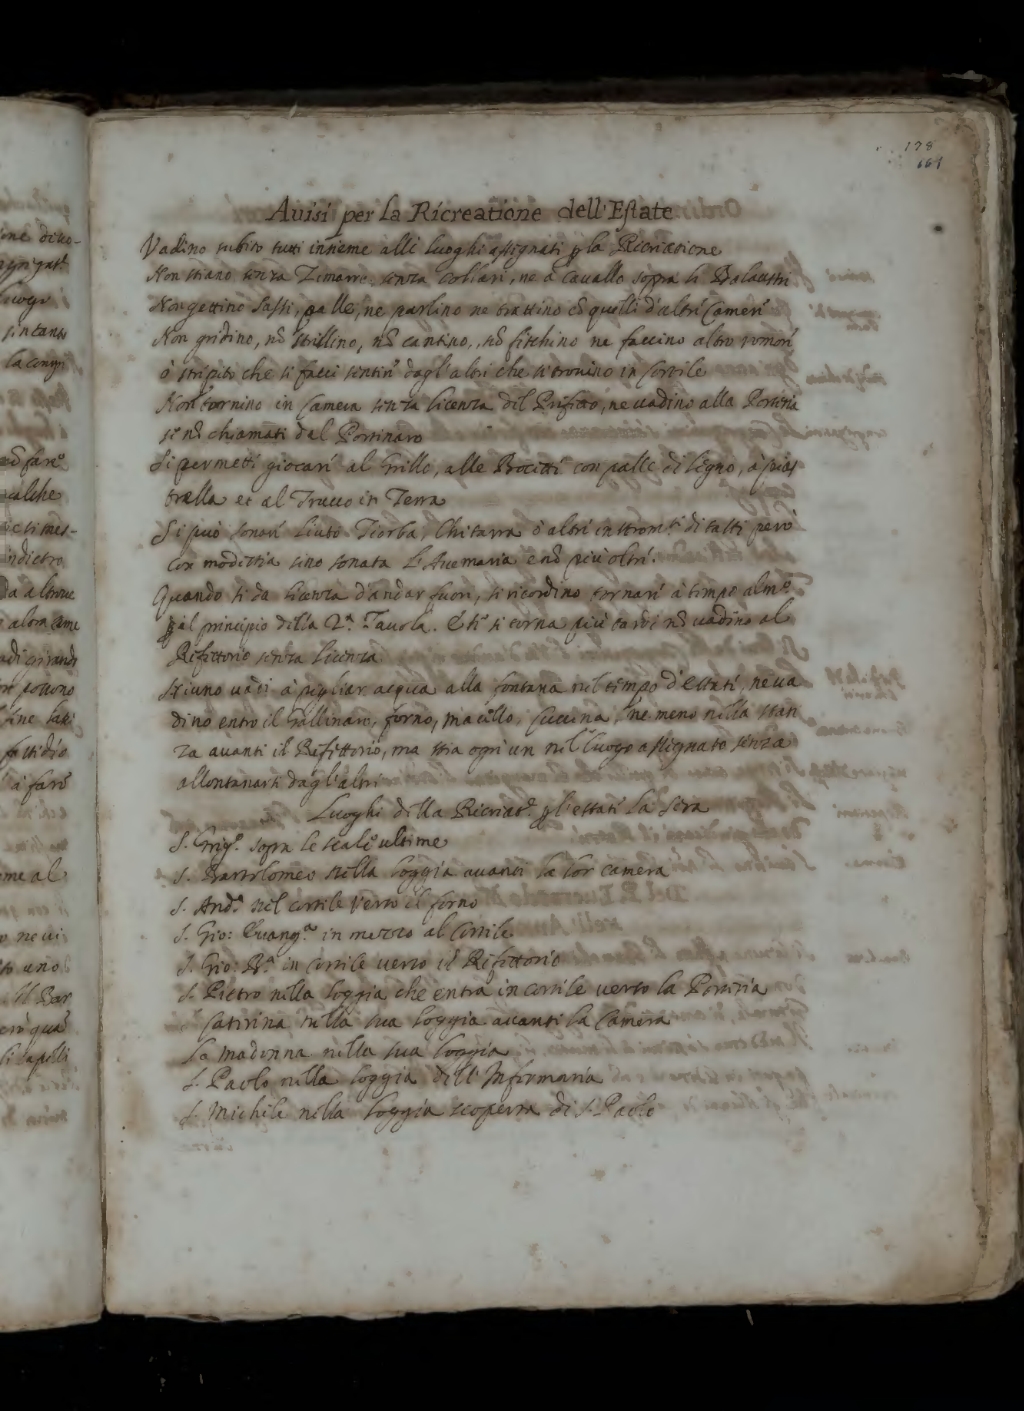 178
169
Auisi per la Ricreatione dell'Estate
Vadino subito tutti insieme alli luoghi assignati p la Ricriatione
Non stiano senza Zimarre, senza Collari, ne à Cauallo sopra li Balaustri
Non gettino Sassi, palle, ne parlino ne trattino cō quelli d'altre Camere
Non gridino, nō strillino, nō cantino, nō fischino ne faccino altro romore
ò stripito che si facci sentire dagl'altri che si trouino in Cortile
Non tornino in Camera senza licenza del Prifitto, ne uadino alla Portiria
se nō chiamati dal Portinaro
Si permetti giocare al Grillo, alle Boccitti con palle di ligno, à pias
trella et al Trucco in Terra
Si può sonare Liuto Tiorba, Chitarra ò altri instromti di tasti però
con modistia sino sonata l'Auemaria e nō più oltre.
Quando si da licenza d'andar fuori, si ricordino tornare à tempo almo
p il principio della 2a Tauola. E se si torna più tardi nō uadino al
Rifittorio senza licenza
Niuno uadi à pigliar acqua alla fontana nel tempo d'estate, ne ua
dino entro il Gallinaro, forno, macello, Cuccina, ne meno nella stan
za auanti il Rifittorio, ma stia ogni un nel luogo assignato senza
allontanarsi dagl'altri
Luoghi della Ricriatne p l'estate la sera
S. Grigo sopra le scale ultime
S. Bartolomeo nella loggia auanti la lor camera
S. Anda nel cortile verso il forno
S. Gio: Euanga in mezzo al Cortile
S. Gio: Ba in cortile verso il Rifittorio
S. Pietro nella loggia che entra in cortile verso la Portiria
S. Catirina nella sua loggia auanti la Camera
La Madonna nella sua loggia
S. Paolo nella loggia dell'Infirmaria
S. Michele nella loggia scoperta di S. Paolo